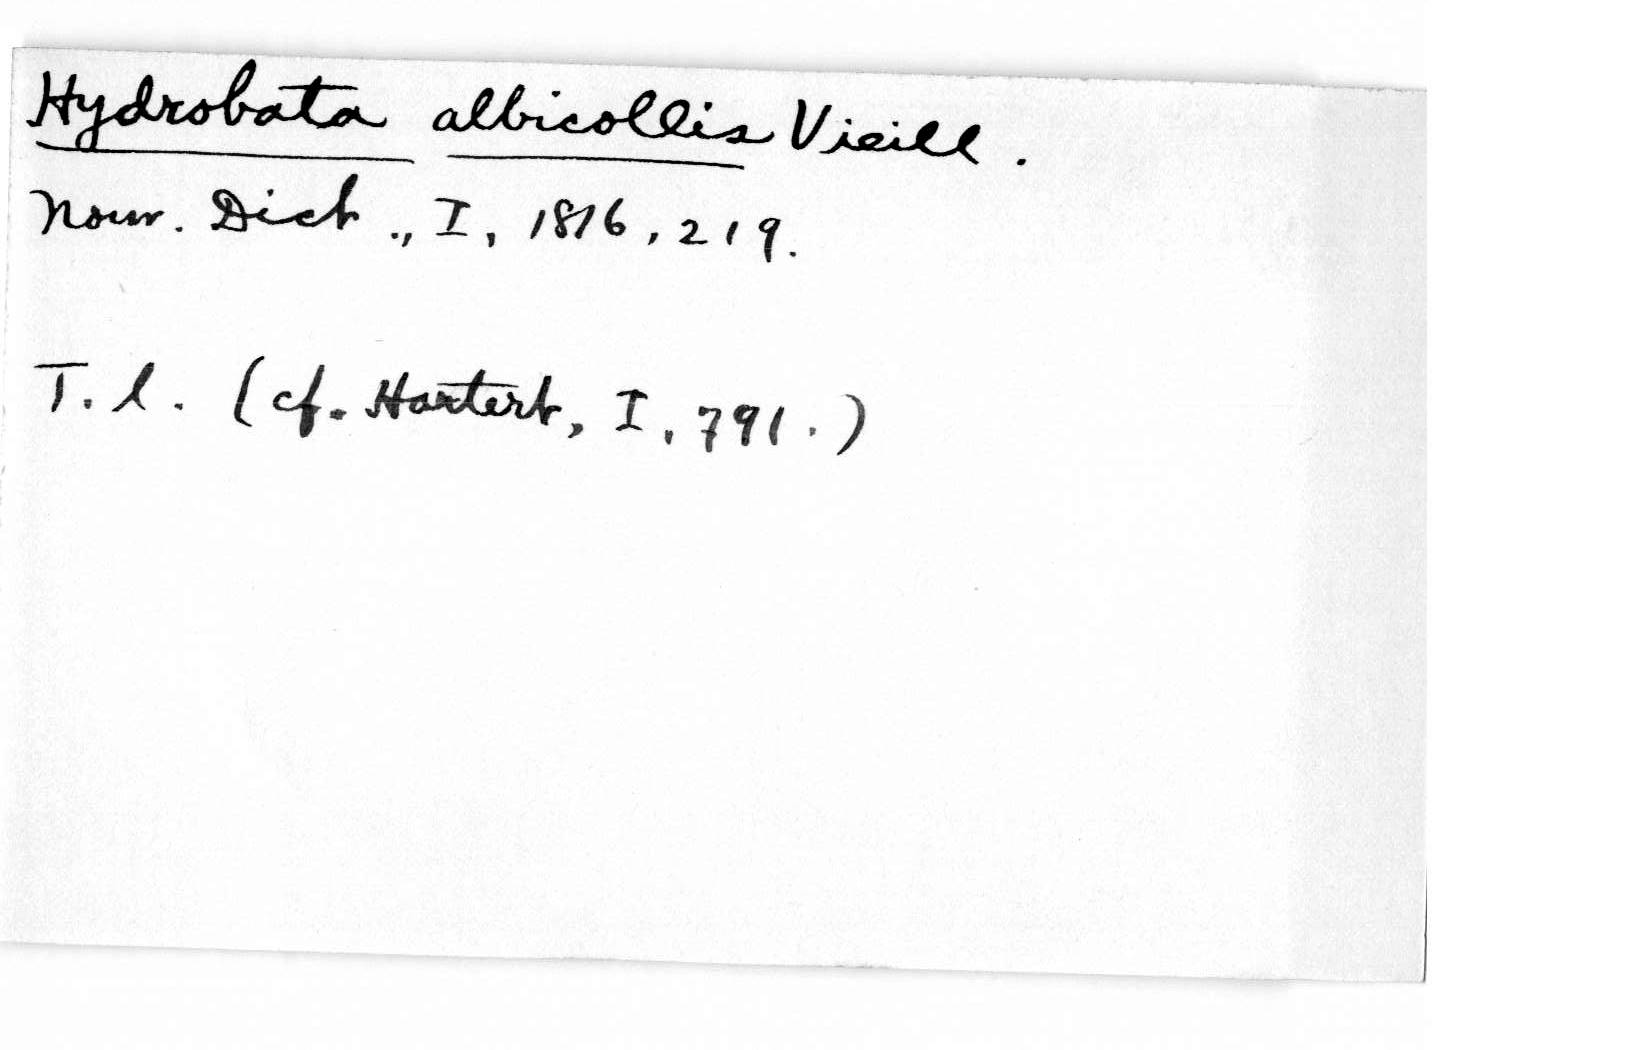 Hydrobata albicollis Vieill.
Nouv. Dict., I, 1816, 219.
T. l. (cf. Hartert, I, 791.)